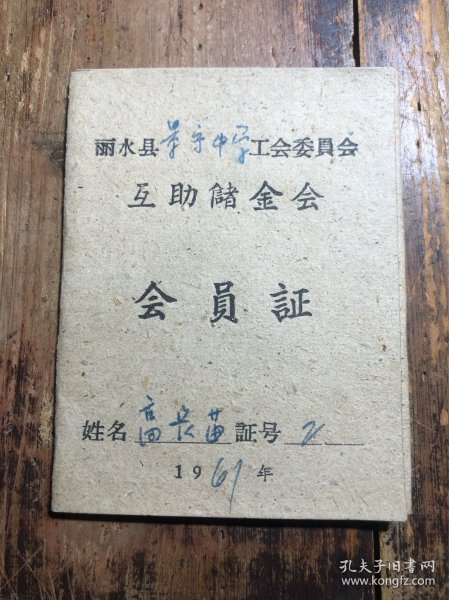 丽水县景宁中学工会委員会
互助儲金会
会員証
姓名 高長苗 証号 21
1961年
孔夫子旧书网
www.kongfz.com